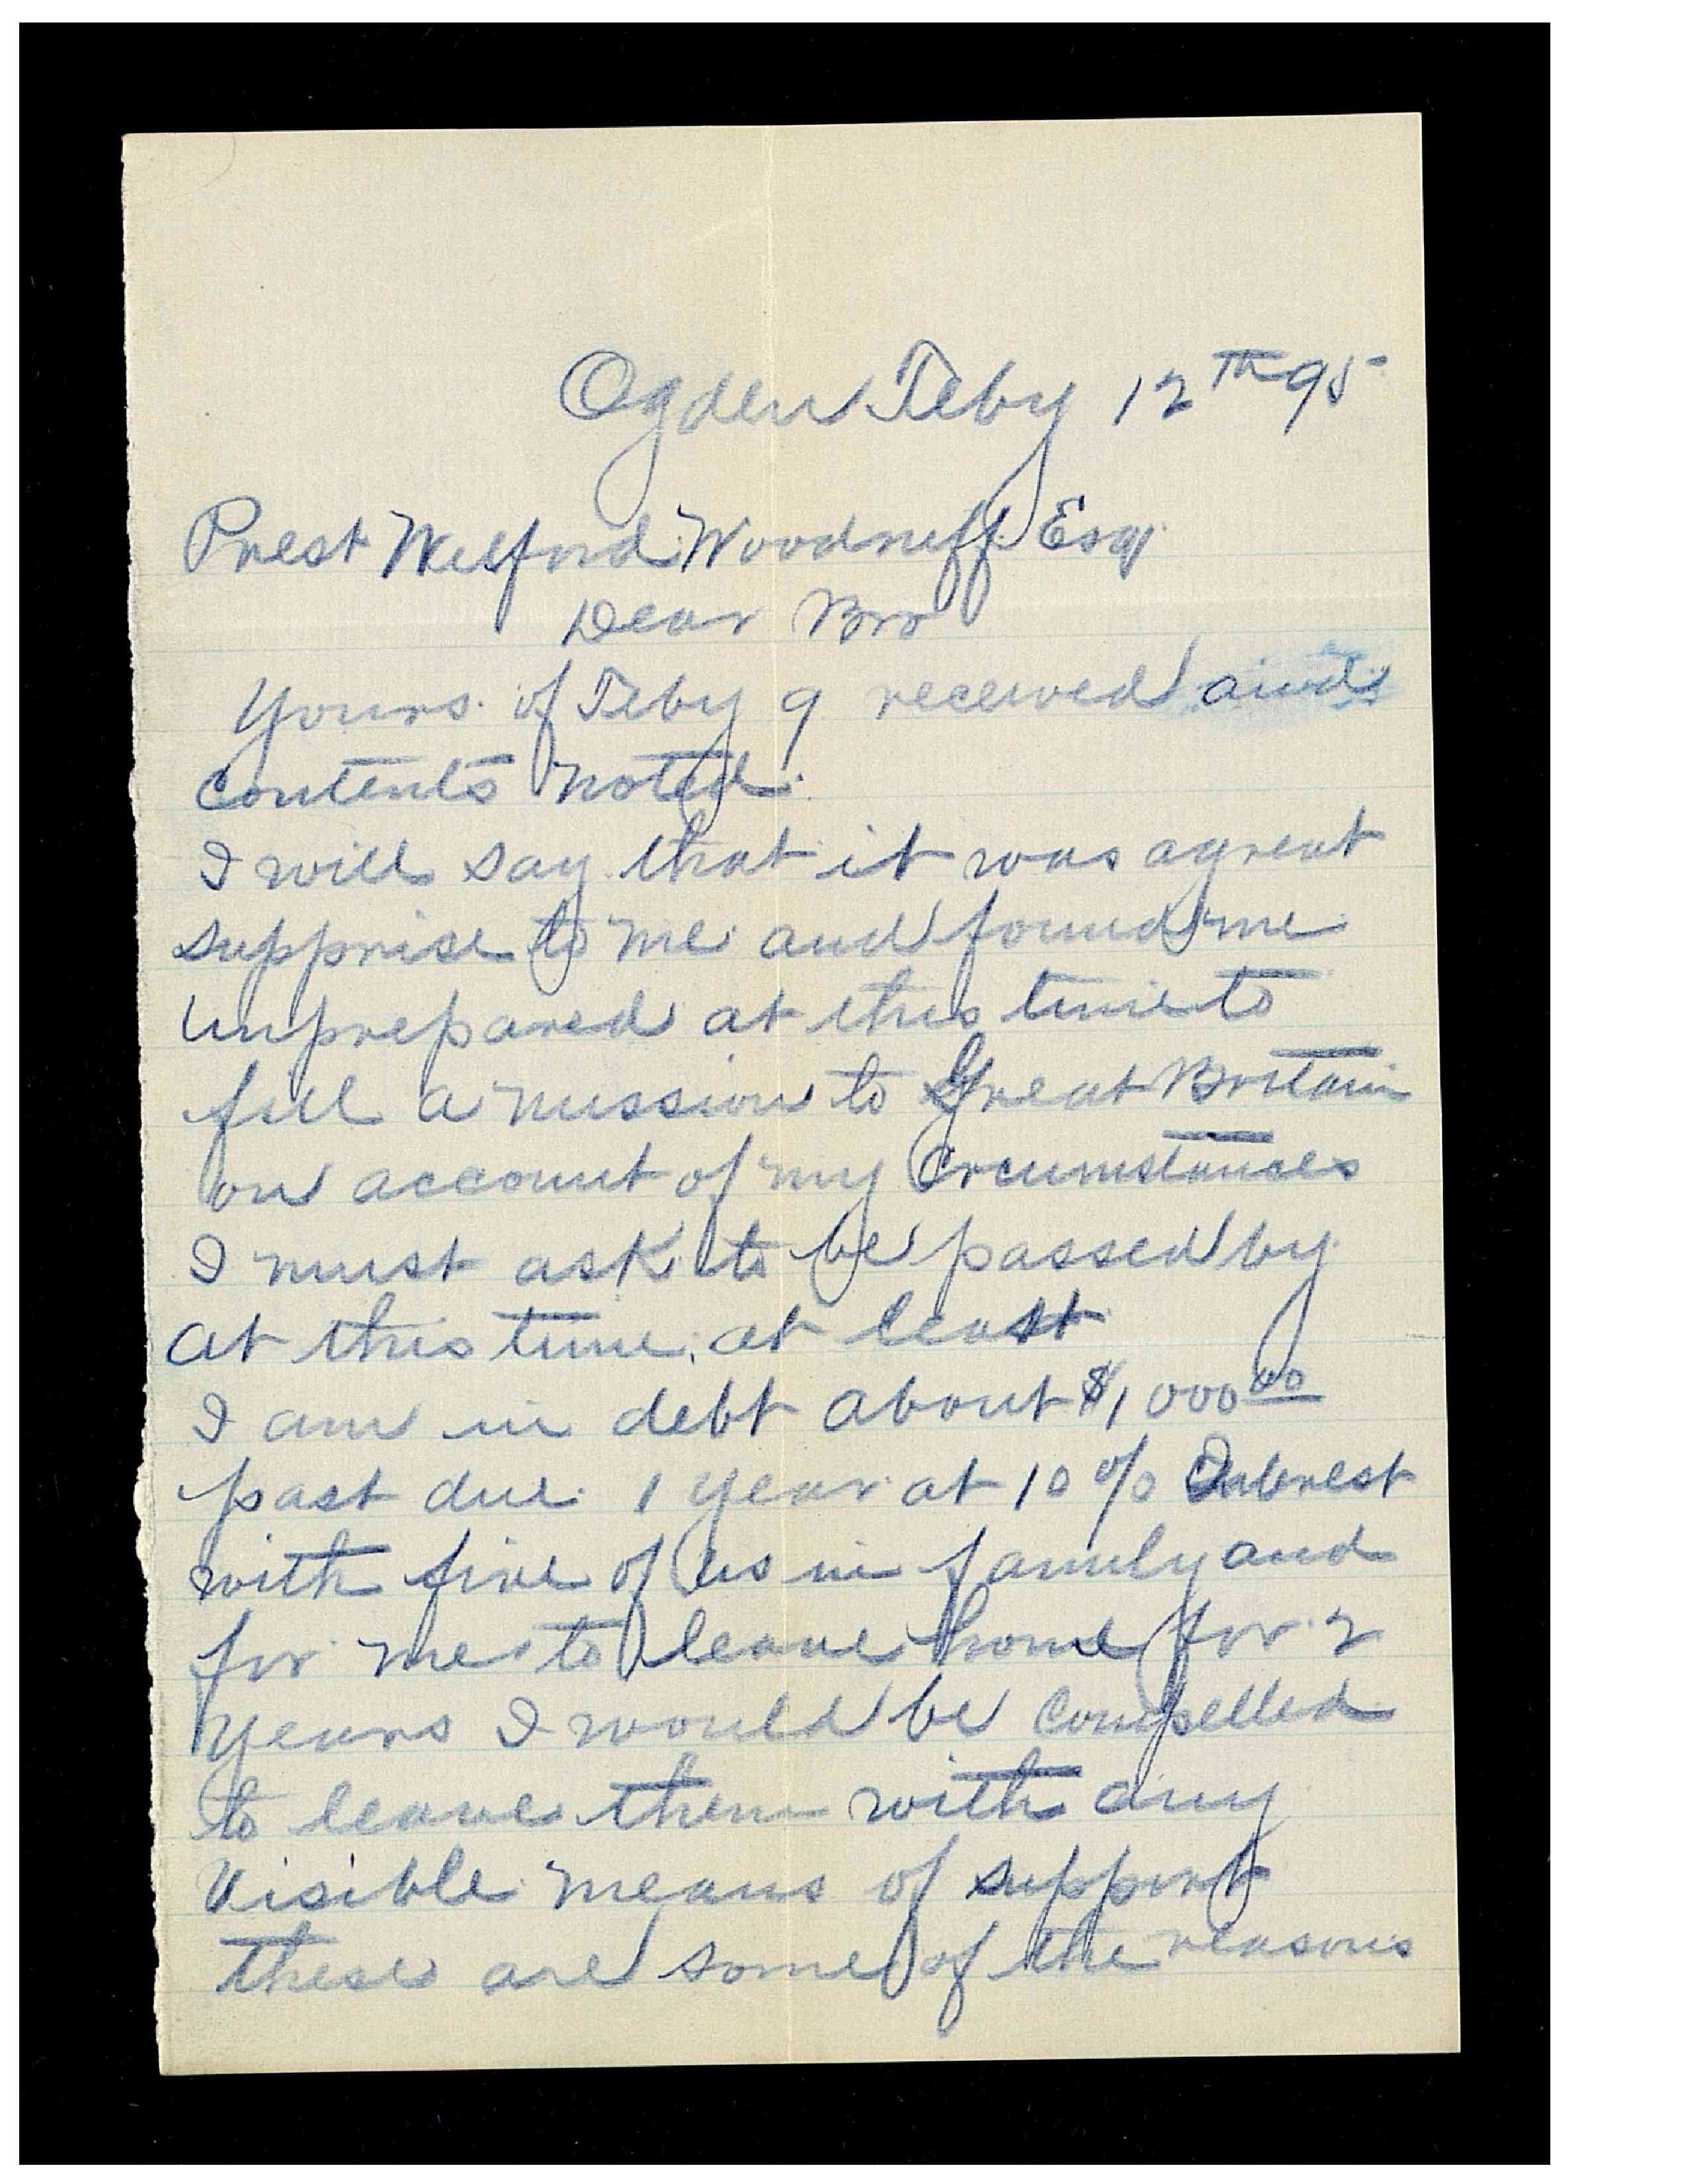 Ogden Feby 12th 95
Prest Wilford Woodruff Esq
Dear Bro
Yours of Feby 9 received and
contents noted.
I will say that it was a great
supprise to me and found me
unprepared at this time to
fill a mission to Great Britain
on account of my Crcumstances
I must ask to be passed by
at this time, at least
I am in debt about $1,000.00
past due 1 year at 10% Interest
with five of us in family and
for me to leave home for 2
years I would be compelled
to leave them with any
visible means of support
these are some of the reasons